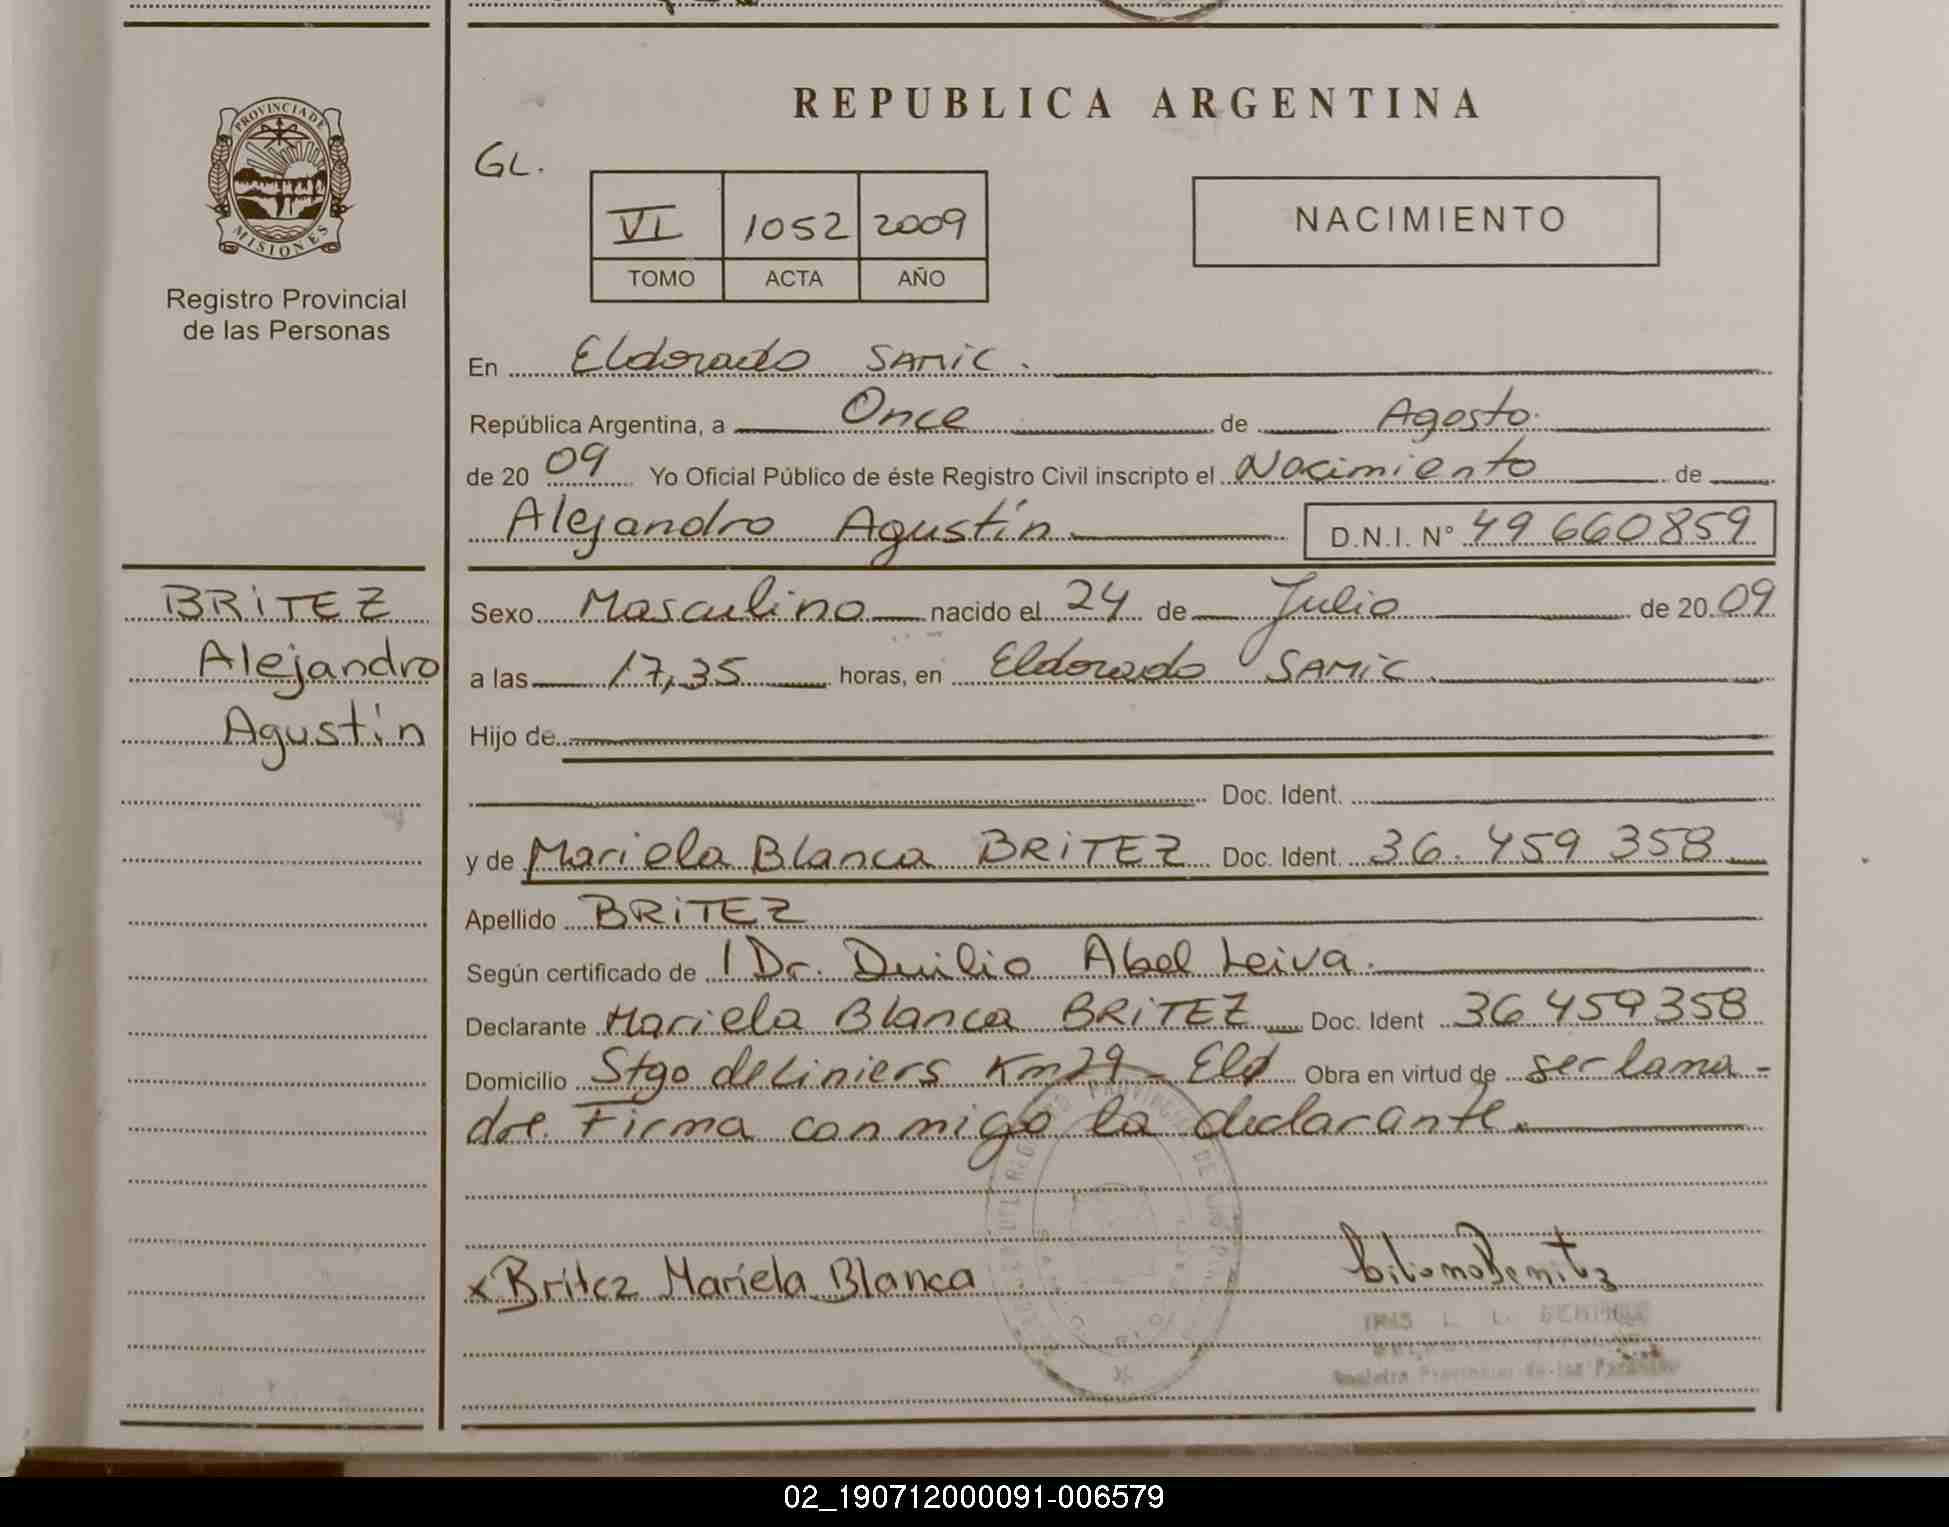 PROVINCIA DE
MISIONES
Registro Provincial
de las Personas
REPUBLICA ARGENTINA
GL.
VI 1052 2009
TOMO ACTA AÑO
NACIMIENTO
En Eldorado SAMIC.
República Argentina, a Once de Agosto.
de 20 09 Yo Oficial Público de éste Registro Civil inscripto el Nacimiento de
Alejandro Agustín D.N.I. N° 49 660859
BRITEZ
Alejandro
Agustín
Sexo Masculino nacido el 24 de Julio de 20 09
a las 17,35 horas, en Eldorado SAMIC
Hijo de
Doc. Ident.
y de Mariela Blanca BRITEZ Doc. Ident. 36.459 358
Apellido BRITEZ
Según certificado de Dr. Duilio Abel Leiva.
Declarante Mariela Blanca BRITEZ Doc. Ident 36 459358
Domicilio Stgo de Liniers Km 29 - Eld Obra en virtud de ser la ma-
dre. Firma conmigo la declarante.
x Britez Mariela Blanca
IRIS L. L.
Registro Provincial de las Personas
02_190712000091-006579